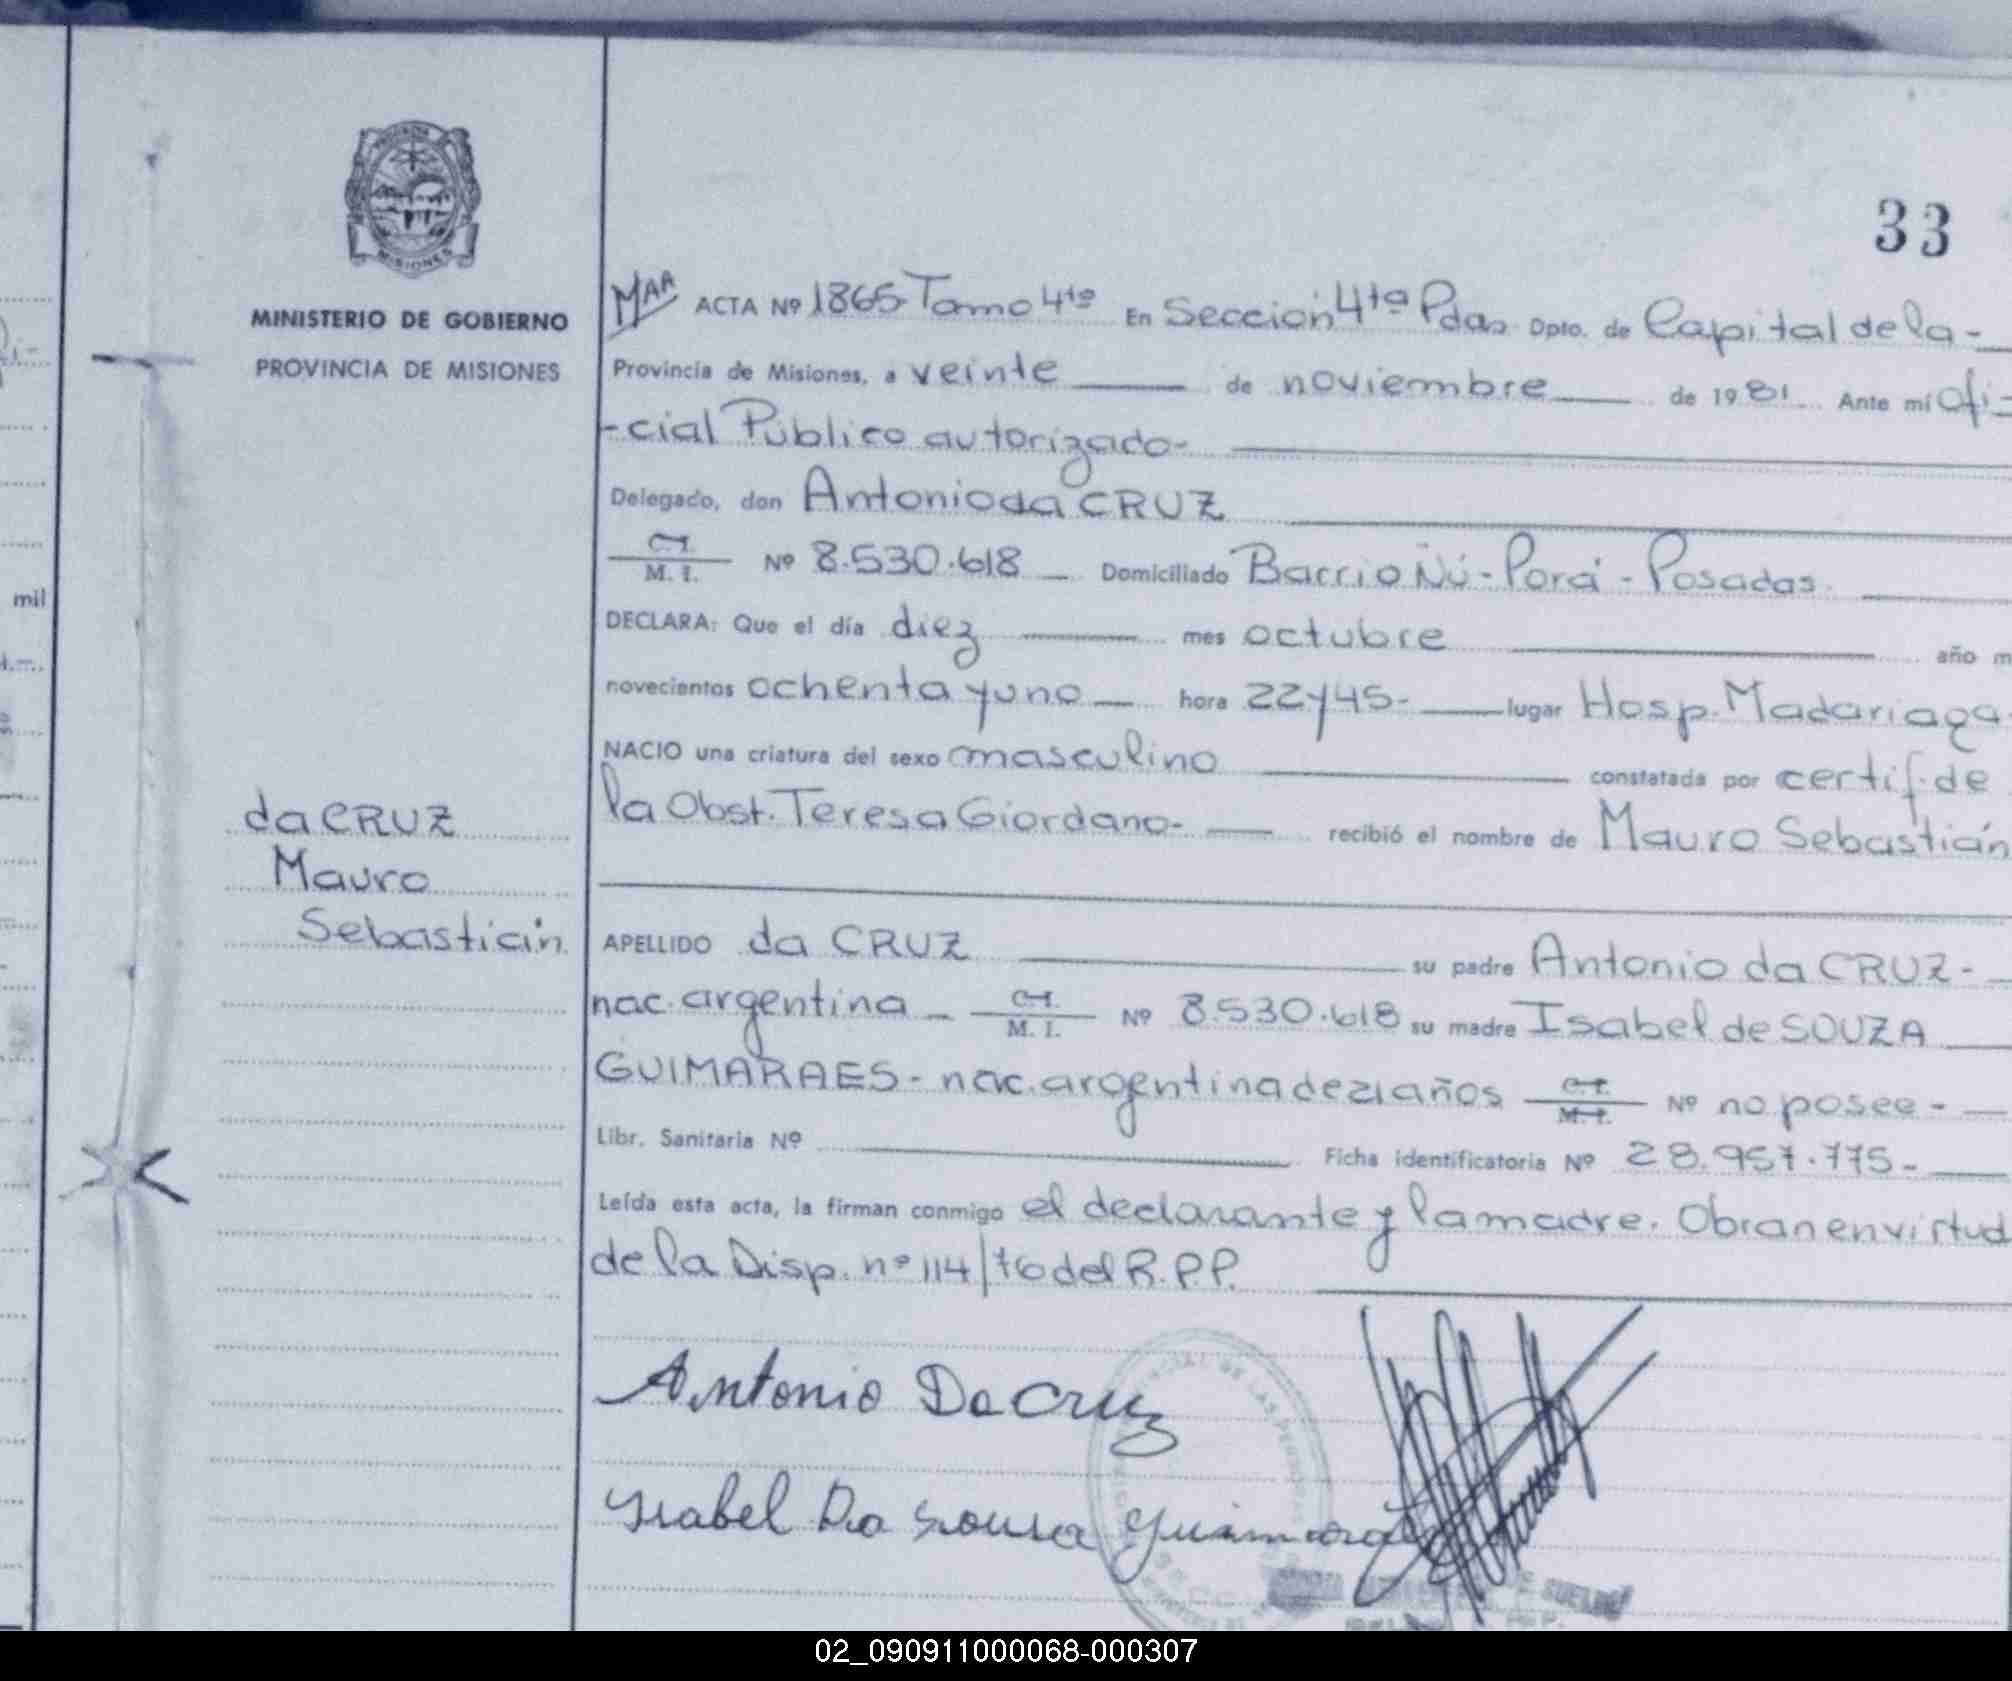 33
MISIONES
MINISTERIO DE GOBIERNO
PROVINCIA DE MISIONES
MAA ACTA Nº 1865 Tomo 4to En Sección 4ta Pdas Dpto. de Capital de la-
Provincia de Misiones, a veinte de noviembre de 1981 Ante mí Ofi-
-cial Público autorizado-
Delegado, don Antonio da CRUZ
C.I. M. I. Nº 8.530.618 Domiciliado Barrio Ñú-Porá-Posadas.
DECLARA: Que el día diez mes octubre año m
novecientos ochenta y uno hora 22y45- lugar Hosp. Madariaga
NACIO una criatura del sexo masculino constatada por certif. de
la Obst. Teresa Giordano- recibió el nombre de Mauro Sebastián
da CRUZ
Mauro
Sebastián
APELLIDO da CRUZ su padre Antonio da CRUZ-
nac. argentina C.I. M. I. Nº 8.530.618 su madre Isabel de SOUZA
GUIMARAES- nac. argentina de 21 años C.I. M. I. Nº no posee-
Libr. Sanitaria Nº Ficha identificatoria Nº 28.957.775-
Leída esta acta, la firman conmigo el declarante y la madre. Obran en virtud
de la Disp. nº 114/76 del R.P.P.
Antonio Da Cruz
Isabel Da Sousa
mil
02_090911000068-000307